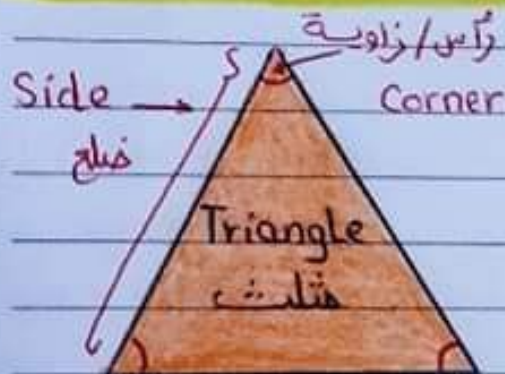 رأس/زاوية
Side
Corner
ضلع
Triangle
مثلث